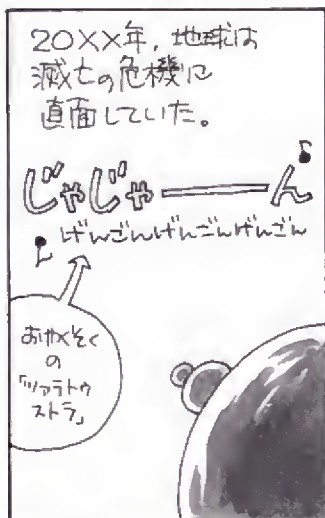 20XX年,地球は
滅亡の危機に
直面していた。
じゃじゃーーん
げんごんげんごんげんごん
おやくそく
の
「ツァラトゥ
ストラ」